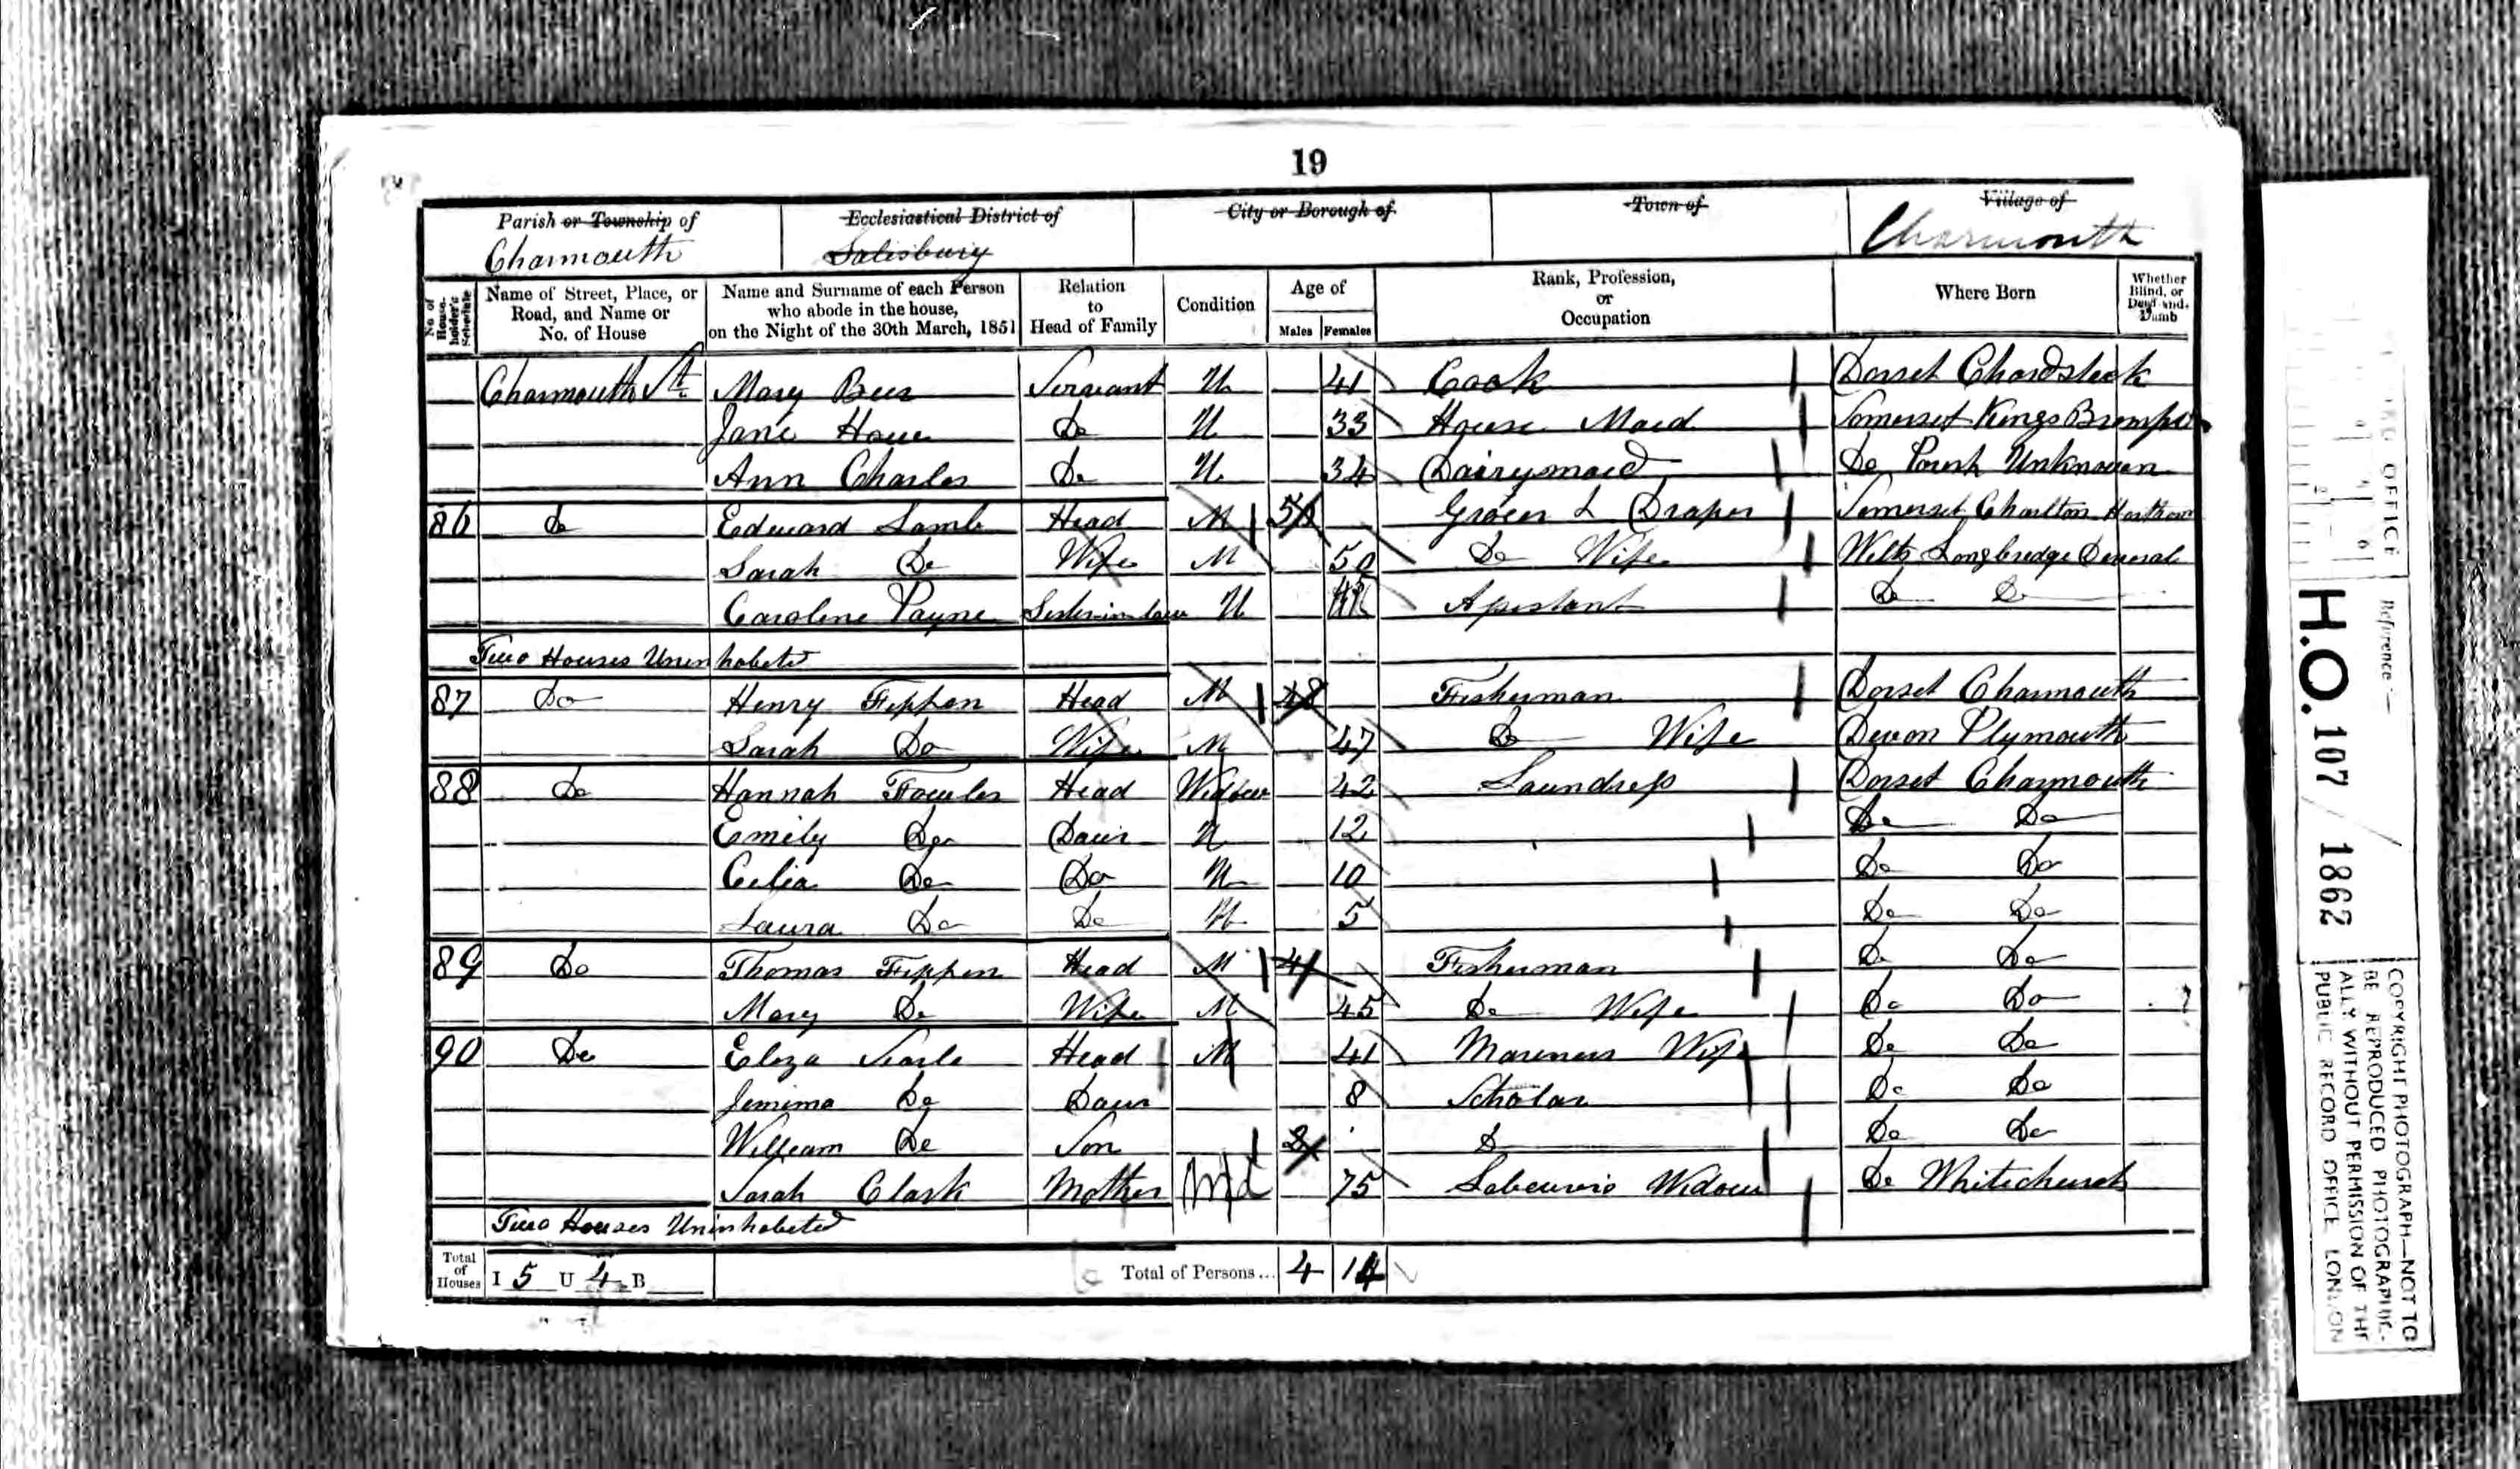 19
Parish or Township of
Charmouth
Ecclesiastical District of
Salisbury
City or Borough of
Town of
Village of
Charmouth
No. of House-holder's Schedule
Name of Street, Place, or Road, and Name or No. of House
Name and Surname of each Person who abode in the house, on the Night of the 30th March, 1851
Relation to Head of Family
Condition
Age of
Males Females
Rank, Profession, or Occupation
Where Born
Whether Blind, or Deaf and Dumb
Charmouth St Mary Bees Servant U 41 Cook Dorset Chardstock
Jane Howe Do U 33 House Maid Somerset Kings Brompton
Ann Charles Do U 34 Dairymaid Do Parish Unknown
86 Do Edward Lamb Head M Grocer & Draper Somerset Charlton
Sarah Do Wife M 50 Do Wife Wilts Longbredge Deveral
Caroline Payne Sister in law U Assistant Do Do
Two Houses Uninhabited
87 Do Henry Fippen Head M 48 Fisherman Dorset Charmouth
Sarah Do Wife M 47 Do Wife Devon Plymouth
88 Do Hannah Fowler Head Widow 42 Laundress Dorset Charmouth
Emily Do Daur U 12 Do Do
Celia Do Do U 10 Do Do
Laura Do Do U 5 Do Do
89 Do Thomas Fippen Head M 41 Fisherman Do Do
Mary Do Wife M 45 Do Wife Do Do
90 Do Eliza Searle Head M 41 Mariners Wife Do Do
Jemima Do Daur 8 Scholar Do Do
William Do Son 2 Do Do Do
Sarah Clark Mother Wid 75 Labourers Widow Do Whitechurch
Two Houses Uninhabited
Total of Houses I 5 U 4 B Total of Persons... 4 14
OFFICE
Reference :—
H.O. 107 / 1862
COPYRIGHT PHOTOGRAPH—NOT TO
BE REPRODUCED PHOTOGRAPHIC-
ALLY WITHOUT PERMISSION OF THE
PUBLIC RECORD OFFICE LONDON